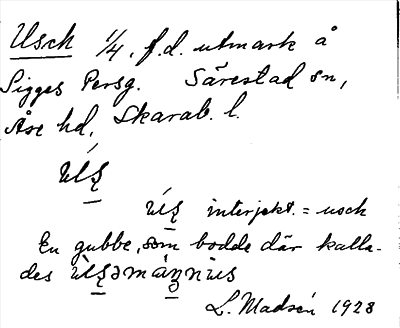 Usch 1/4, f.d. utmark å
Sigges Persg. Särestad sn,
Åse hd, Skarab. l.
interjekt. = usch
En gubbe, som bodde där kalla-
des
L. Madsén 1928